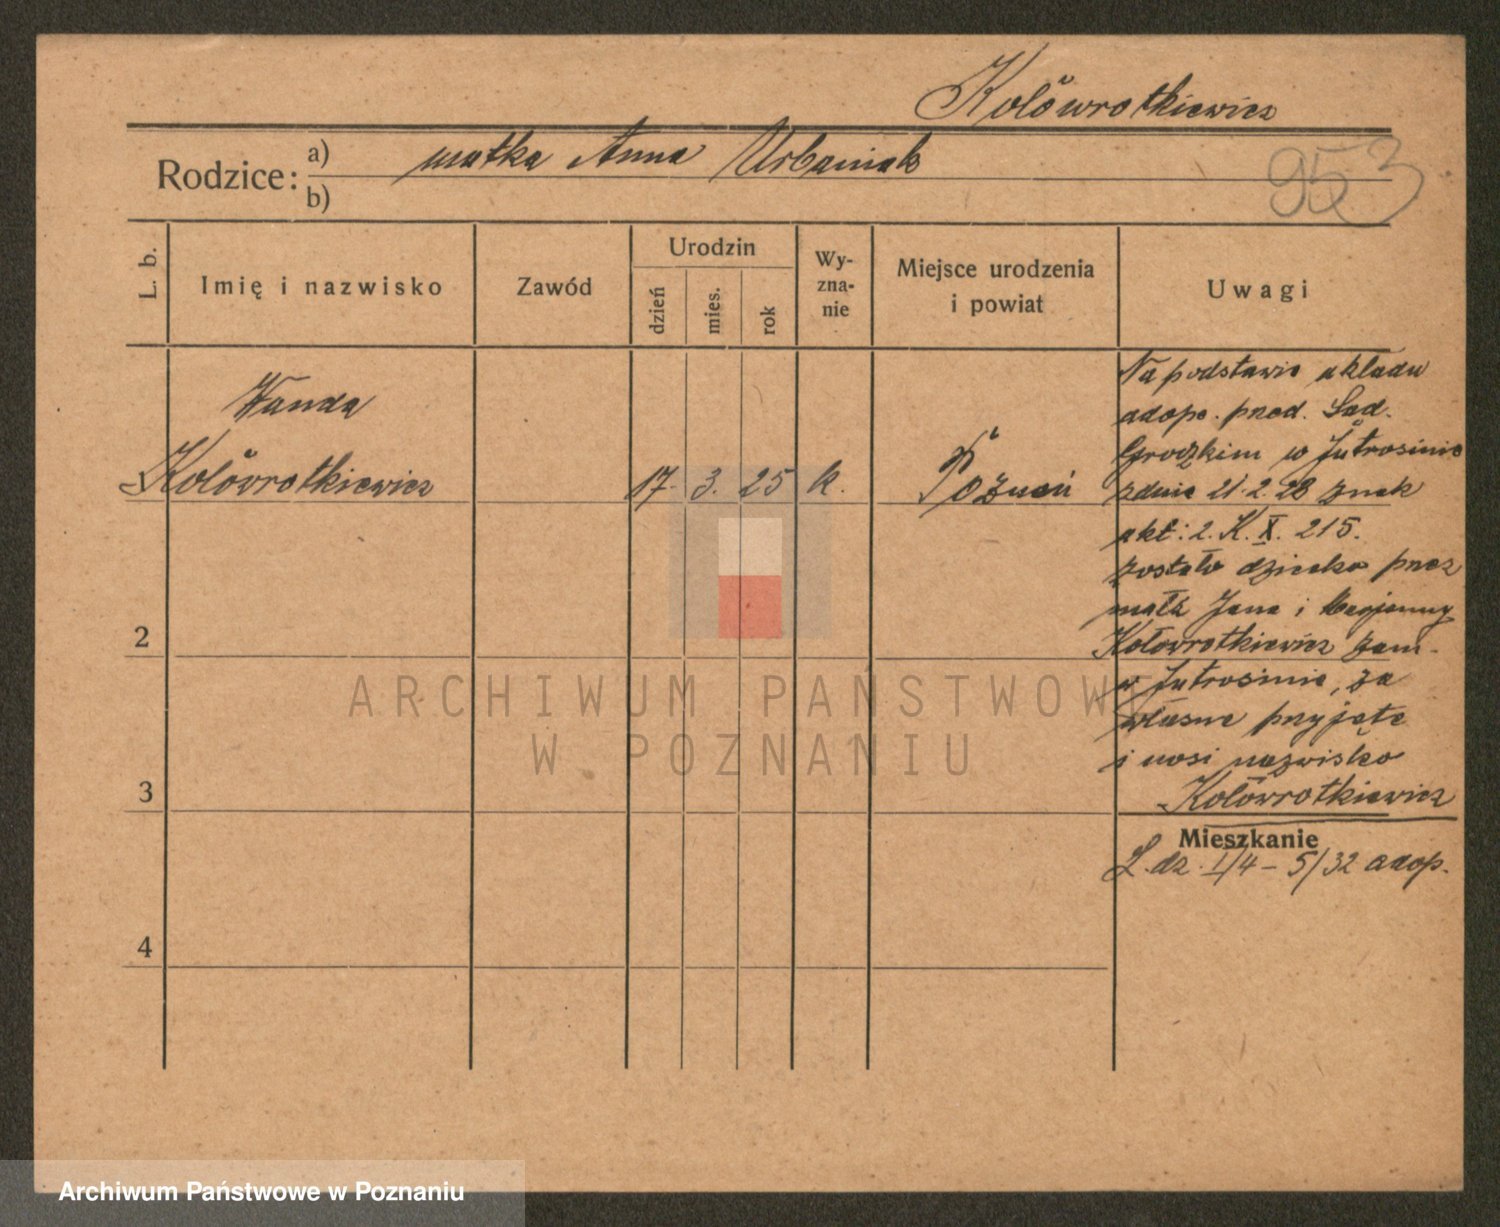 Kolówrotkiewicz
Rodzice: a) matka Anna Urbaniak
b)
953
L. b.
Imię i nazwisko
Zawód
Urodzin
dzień
mies.
rok
Wy-
zna-
nie
Miejsce urodzenia
i powiat
Uwagi
Wanda
Kolówrotkiewicz 17. 3. 25 k. Poznań
Na podstawie układu
adopc. przed. Sąd.
Grodzkim w Jutrosinie
z dnia 21.2.28 znak
akt: 2. K. X. 215.
zostało dziecko przez
małż Jana i Marjanny
Kołowrotkiewicz zam.
w Jutrosinie, za
własne przyjęte
i nosi nazwisko
Kolówrotkiewicz
Mieszkanie
L. dz. I/4 – 5/32 adop.
2
3
4
ARCHIWUM PAŃSTWOWE
W POZNANIU
Archiwum Państwowe w Poznaniu